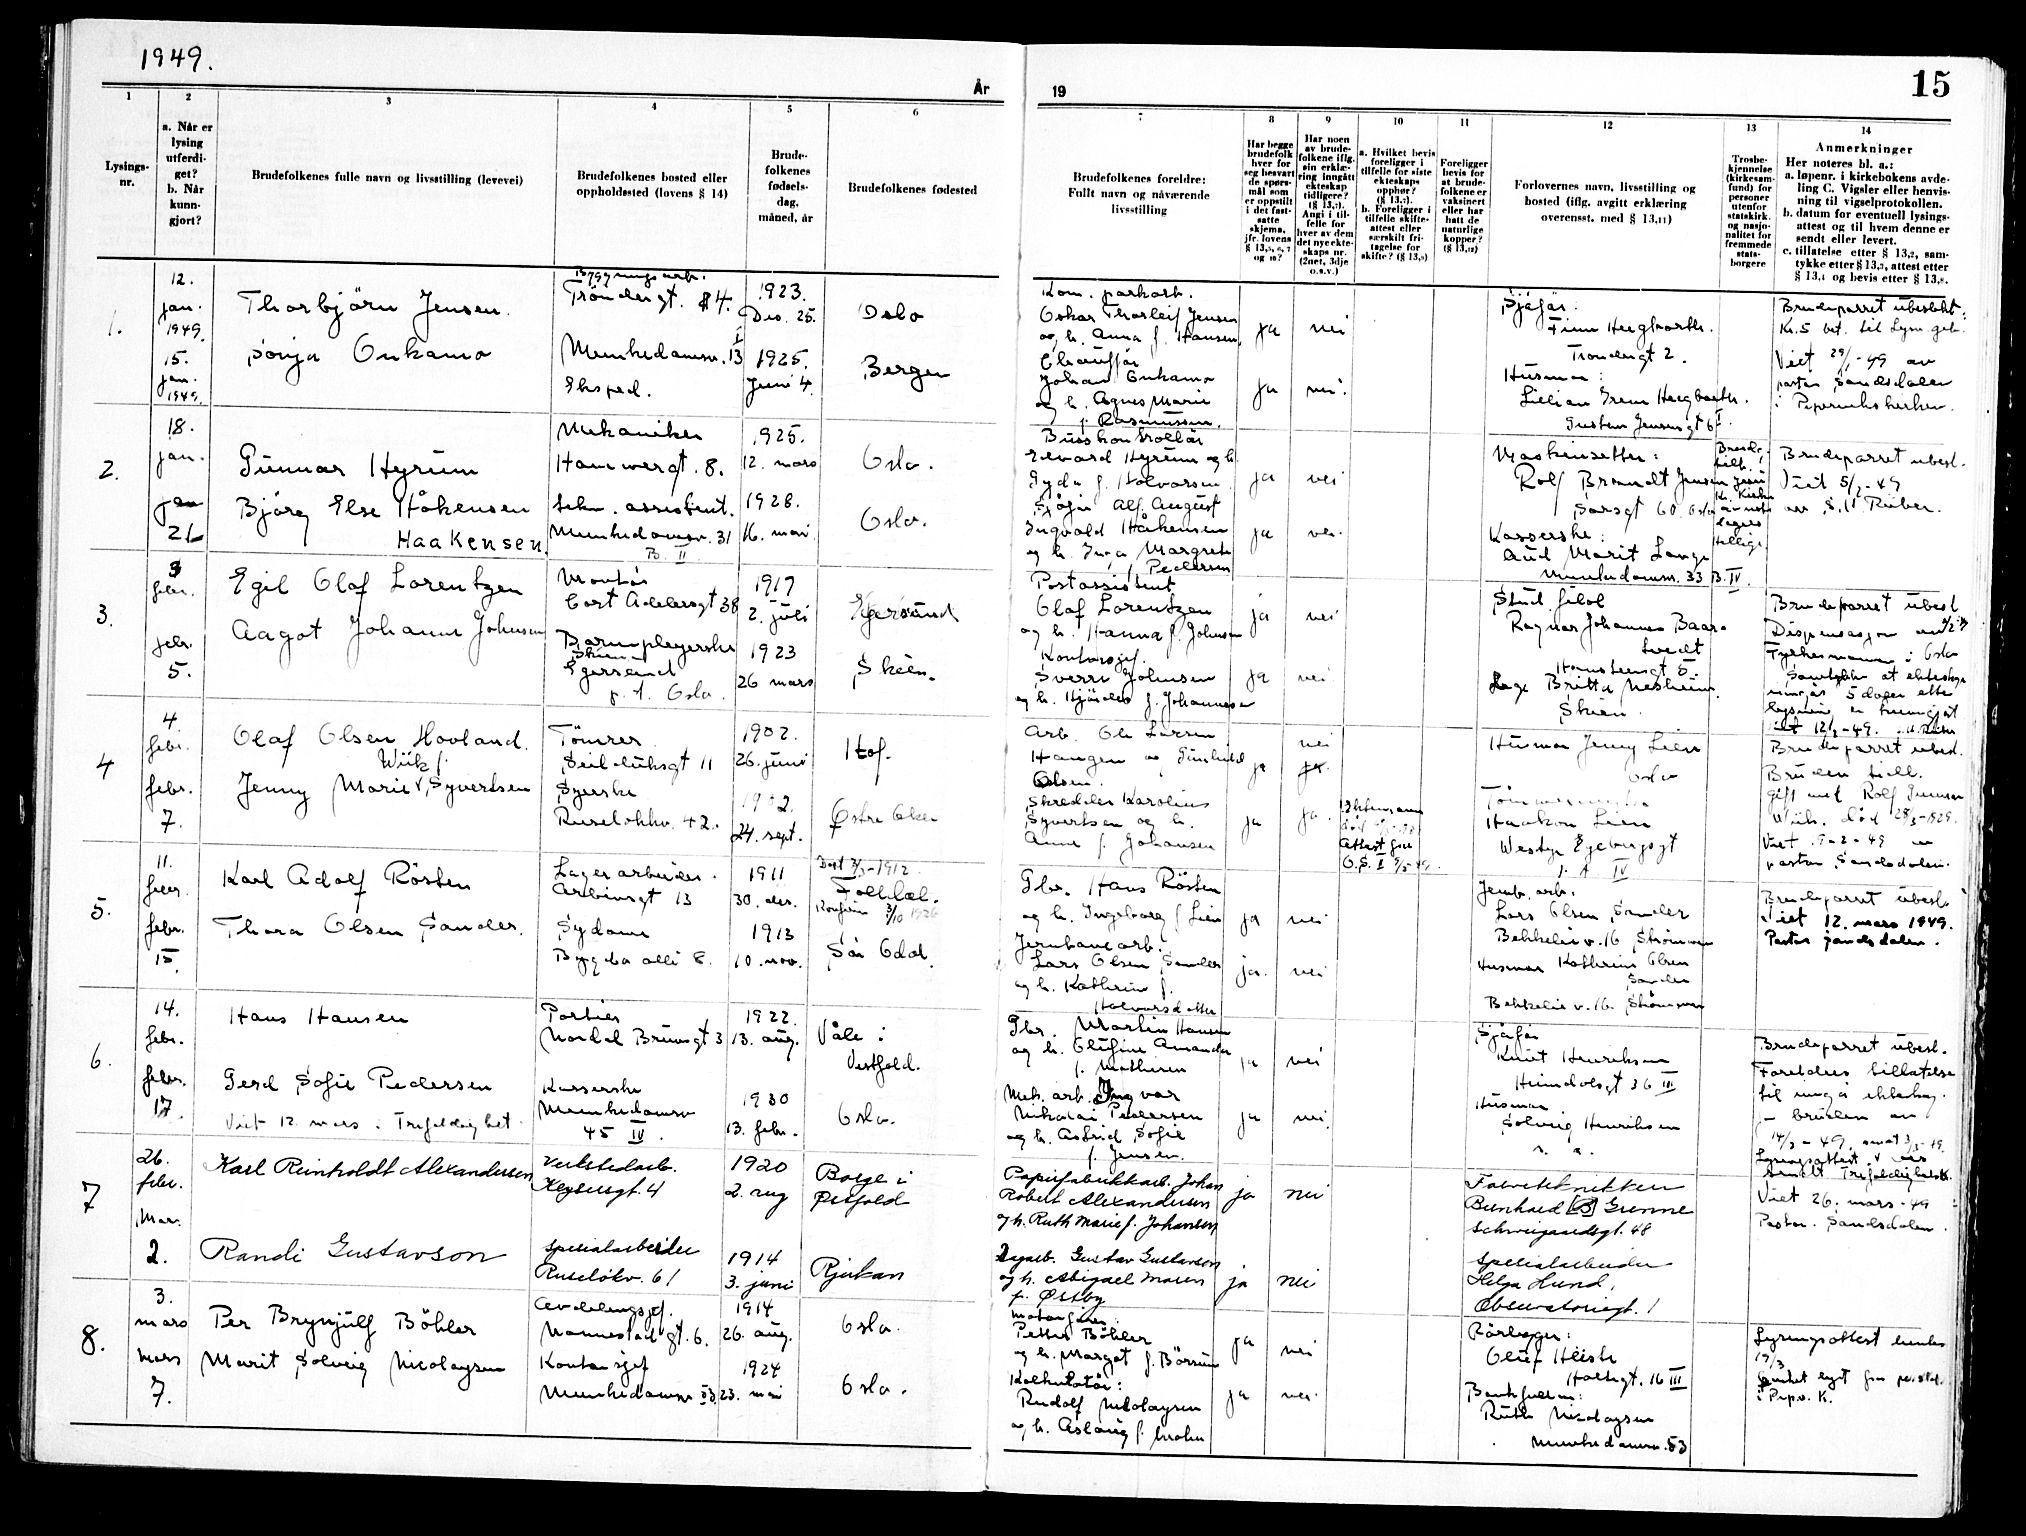 1949.
År
19
15
1
2
3
4
5
6
7
8
9
10
11
12
13
14
Lysings-
nr.
a. Når er
lysing
utferdi-
get?
b. Når
kunn-
gjort?
Brudefolkenes fulle navn og livsstilling (levevei)
Brudefolkenes bosted eller
oppholdssted (lovens § 14)
Brude-
folkenes
fødsels-
dag,
måned, år
Brudefolkenes fødested
Brudefolkenes foreldre:
Fullt navn og nåværende
livsstilling
Har begge
brudefolk
hver for
seg besvart
de spørs-
mål som
er oppstilt
i det fast-
satte
skjema,
jfr. lovens
§ 13,5, 6, 7
og 10?
Har noen
av brude-
folkene iflg.
sin erklæ-
ring inngått
ekteskap
tidligere?
(§ 13,7).
Angi i til-
felle for
hver av dem
det nye ekte-
skaps nr.
(2net, 3dje
o.s.v.)
a. Hvilket bevis
foreligger i
tilfelle for siste
ekteskaps
opphør?
(§ 13,7).
b. Foreligger i
tilfelle skifte-
attest eller
særskilt fri-
tagelse for
skifte? (§ 13,9)
Foreligger
bevis for
at brude-
folkene er
vaksinert
eller har
hatt de
naturlige
kopper?
(§ 13,12)
Forlovernes navn, livsstilling og
bosted (iflg. avgitt erklæring
overensst. med § 13,11)
Trosbe-
kjennelse
(kirkesam-
fund) for
personer
utenfor
statskirk.
og nasjo-
nalitet for
fremmede
stats-
borgere
Anmerkninger
Her noteres bl. a.:
a. løpenr. i kirkebokens avde-
ling C. Vigsler eller henvis-
ning til vigselprotokollen.
b. datum for eventuell lysings-
attest og til hvem denne er
sendt eller levert.
c. tillatelse etter § 13,2, sam-
tykke etter § 13,3, attest etter
§ 13,4 og bevis etter § 13,8.
1.
12.
jan.
1949.
15.
jan.
1949.
Thorbjörn Jensen.
Sonja Onkamo
Bygningsarb.
Tröndergt. 4.
Munkedamsv. 13
Eksped.
1923.
Des. 25.
1925.
Juni 4.
Oslo
Bergen
Kom. parkarb.
Oskar Thorleif Jensen
og h. Anna f. Hansen.
Chauffør
Johan Onkamo
og h. Agnes Marie
f. Rasmussen.
ja
nei
ja
nei.
Sjåfør.
Finn
Trondergt 2.
Husmor:
Lilian Irene
Gustav Jensensgt 6
Brudeparret ubeslekt.
Kr. 5 bet. til Lysn. geb.
Viet 29/1-49 av
pastor Sandsdalen
i Piperviks kirken.
2.
18.
jan.
jan
26
Gunnar Hyrum
Björg Else Håkensen
HAAKENSEN.
Mekaniker
Hammergt. 8.
Sekr. assistent.
Munkedamsv. 31
B. II
1925.
12. mars
1928.
16. mai
Oslo.
Oslo.
Busskontrollør
Edvard Hyrum og h.
Gyda f. Halvorsen
Sjåfør Alf August
Ingvald Håkensen
og h. Inga Margrete
f. Pedersen
ja
nei
ja
nei.
Maskinsetter:
Rolf Brandt Jensen
Sarsgt 60 Oslo
Kasserske:
Aud Marit Lange
Munkedamsv. 33 B. IV.
Jesu
Kr. Kirke
av siste
dagers
hellige
Brudeparret ubesl.
Viet 5/2-49
av S. U. Ruber.
3.
3
febr.
febr.
5.
Egil Olaf Lorentzen
Aagot Johanne Johnsen
Montør
Cort Adelersgt 38
Barnepleyerske
Skien
Egersund
p. t. Oslo.
1917
2. juli
1923
26 mars
Egersund
Skien.
Postassistent
Olaf Lorentzen
og h. Hanna f. Johnsen
Kontorsjef.
Sverre Johnsen
og h. Hjördis f. Johannesen
ja
nei
ja
nei.
Stud. filol
Ragnar Johannes Baar-
tvedt
Homstensgt 5.
Britta Nesheim.
Skien.
Brudeparret ubesl.
Dispensasjon av
Fylkesmannen i Oslo
Samtykke at ekteskap
inngås 5 dager etter
lysning er kunngjort
viet 12/2-49.
4
4
febr.
febr.
7.
Olaf Olsen Hovland.
Wiik f.
Jenny Marie Syvertsen
Tömrer
Seilduksgt 11
Syerske
Ruselökkv. 42.
1902.
26. juni
1902.
24. sept.
Hof.
Östre Aker
Arb. Ole Larsen
Haugen og Gunhild
Olsen.
Skredder Karolius
Syvertsen og h.
Anna f. Johansen
nei
ja
ja
ja.
Ektemann
død
Attest fra
O.S.
Husmor Jenny Lien
Oslo
Tömmermester
Haakon Lien
Westye Egebergsgt
Brudeparret ubesl.
Bruden tidl.
gift med Rolf Gunnar
Wiik. død 28/3-1929.
Viet 9-2-49 av
pastor Sandsdalen.
5.
11.
febr.
febr.
15.
Karl Adolf Rösten
Thora Olsen Sander.
Lagerarbeider.
Arbinsgt 13
Sydame
Bygdø allé 8.
1911
30. des.
1913
10. nov.
Döpt 3/3-1912
Folldal.
Konfirm
Sör Odal.
Gbr. Hans Rösten
og h. Ingeborg f. Lien
Jernbanearb.
Lars Olsen Sander
og h. Kathrine f.
Halvorsdatter
ja
nei
ja.
nei
Jernb. arb.
Lars Olsen Sander
Bekkeliv v. 16 Strömmen
Husmor Kathrine Olsen
Sander
Bekkeliv v. 16. Strömmen
Brudeparret ubesl.
Viet 12. mars 1949.
Pastor Sandsdalen.
6.
14.
febr.
febr.
17.
Hans Hansen
Gerd Sofie Pedersen
Viet 12. mars i Trefoldighet
Portier
Nordal Brunsgt 3
Kasserske
Munkedamsv
45 IV.
1922.
13. aug.
1930
13. febr.
Våle i
Vestfold.
Oslo.
Gbr. Martin Hansen
og h. Olufine Amanda
f. Mathisen
Mek. arb. Ingvar
Nikolai Pedersen
og h. Astrid Sofie
f. Jensen.
ja
nei
ja
nei
Sjåfør
Knut Henriksen
Heimdalsgt 36 III
Husmor
Solveig Henriksen
s. a.
Brudeparret ubesl.
Foreldres tillatelse
til inngå ekteskap
f. bruden av
Lysningsattest
sendt Trefoldighetsk.
7
26.
febr.
Mar.
2.
Karl Reinholdt Alexandersen
Randi Gustavson
Verkstedarb.
Keysersgt. 4
Spesialarbeider
Ruselökv. 61
1920
2. aug
1914
3. juni
Borge i
Østfold
Rjukan
Papirfabrikkarb. Johan
Robert Alexandersen
og h. Ruth Marie f. Johansen
Dagarb. Gustav Gustavson
og h. Abigael Maren
f. Østby
ja
nei
ja
nei
Bernhard B Grenne
Schweigaardsgt. 48
Spesialarbeider
Helga Lund,
Observatoriegt. 1
Viet 26. mars-49
Pastor. Sandsdalen.
8.
3.
mars
mars
7.
Per Brynjulf Böhler
Marit Solveig Nicolaysen
Avdelingssjef.
Mannestadgt. 6.
Kontorsjef
Munkedamsv 53
1914
26. aug.
1924
23. mai
Oslo.
Oslo.
Petter Böhler
og h. Margot f. Börsum
Kalkulatör:
Rudolf Nicolaysen
og h. Aslaug f. Mohn
ja
nei
ja
nei.
Rörlegger:
Holtegt. 16 III
Ruth Nicolaysen
Munkedamsv. 53
Lysningsattest sendes
19/3
i Pipv. K.